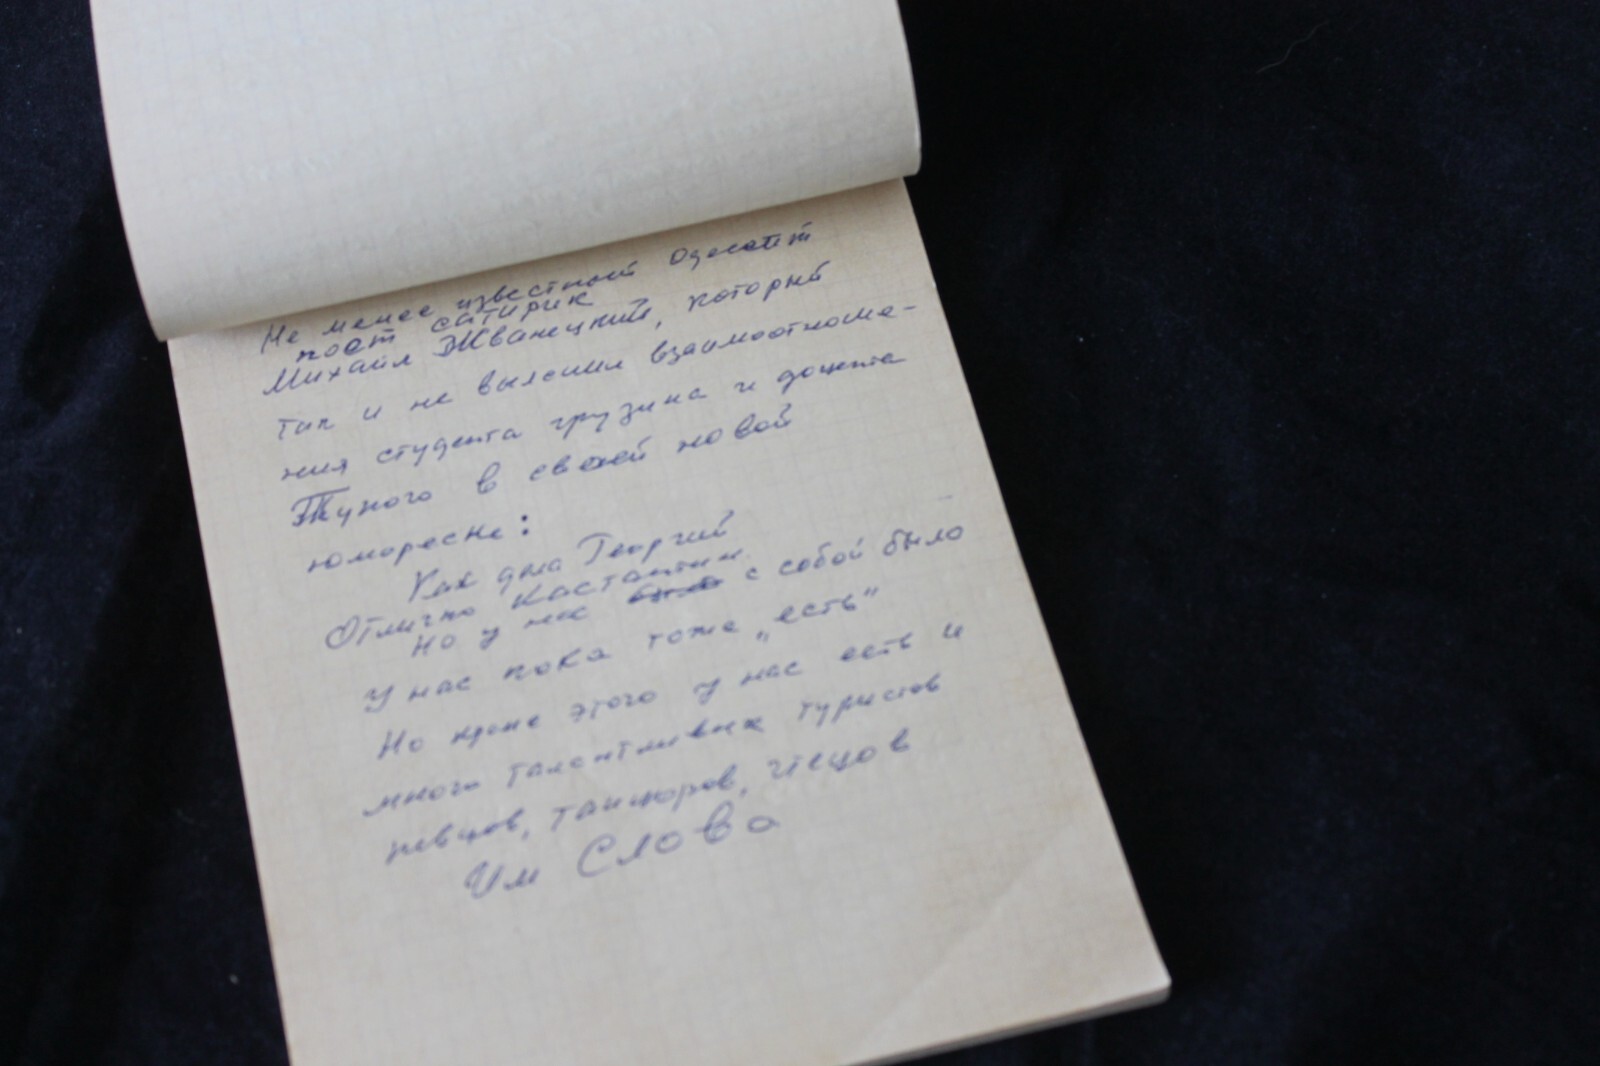 Не менее известный одессит
поэт сатирик
Михаил Жванецкий, который
так и не выяснил взаимоотноше-
ния студента грузина и доцента
Тупого в своей новой
юмореске:
Как дла Георгий
Отлично Кастантин
Но у нас было с собой было
У нас пока тоже „есть"
Но кроме этого у нас есть и
много талантливых туристов
певцов, танцоров, чтецов
Им Слово